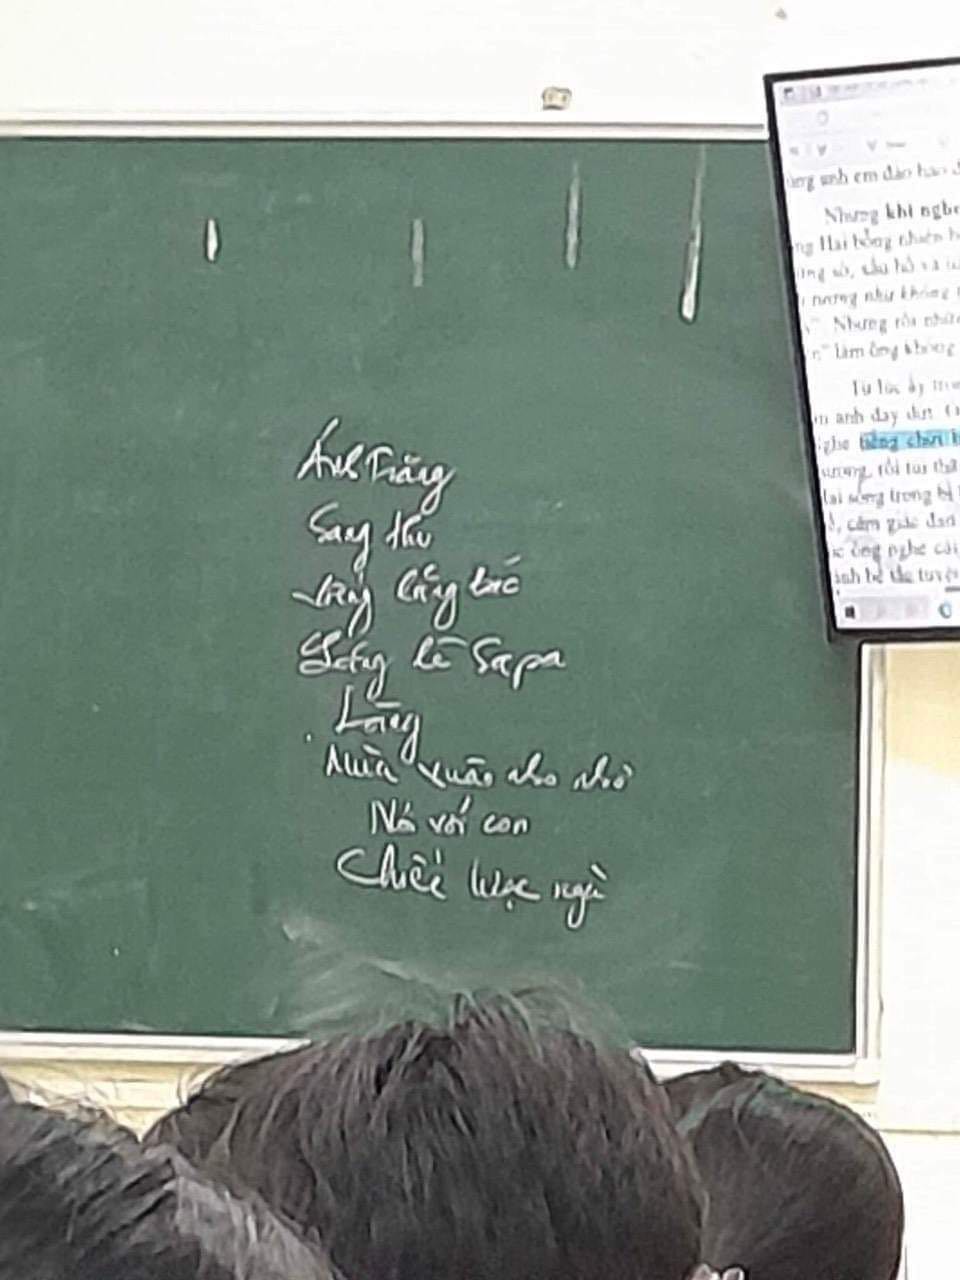 Ánh Trăng
Sang thu
Viếng lăng bác
Lặng lẽ Sapa
Làng
Mùa xuân nho nhỏ
Nó với con
Chiếc lược ngà
ùng anh em đào hào đ
Nhưng khi nghe
ng Hai bỗng nhiên b
ững sờ, xấu hổ và
tượng như không
Nhưng rồi nhữ
n" làm ông không
Từ lúc ấy tron
m anh day dứt.
nghe tiếng chửi
sương, rồi tủi thâ
lại sống trong bi
cảm giác đau
ông nghe cái
ảnh bế tắc tuyệ